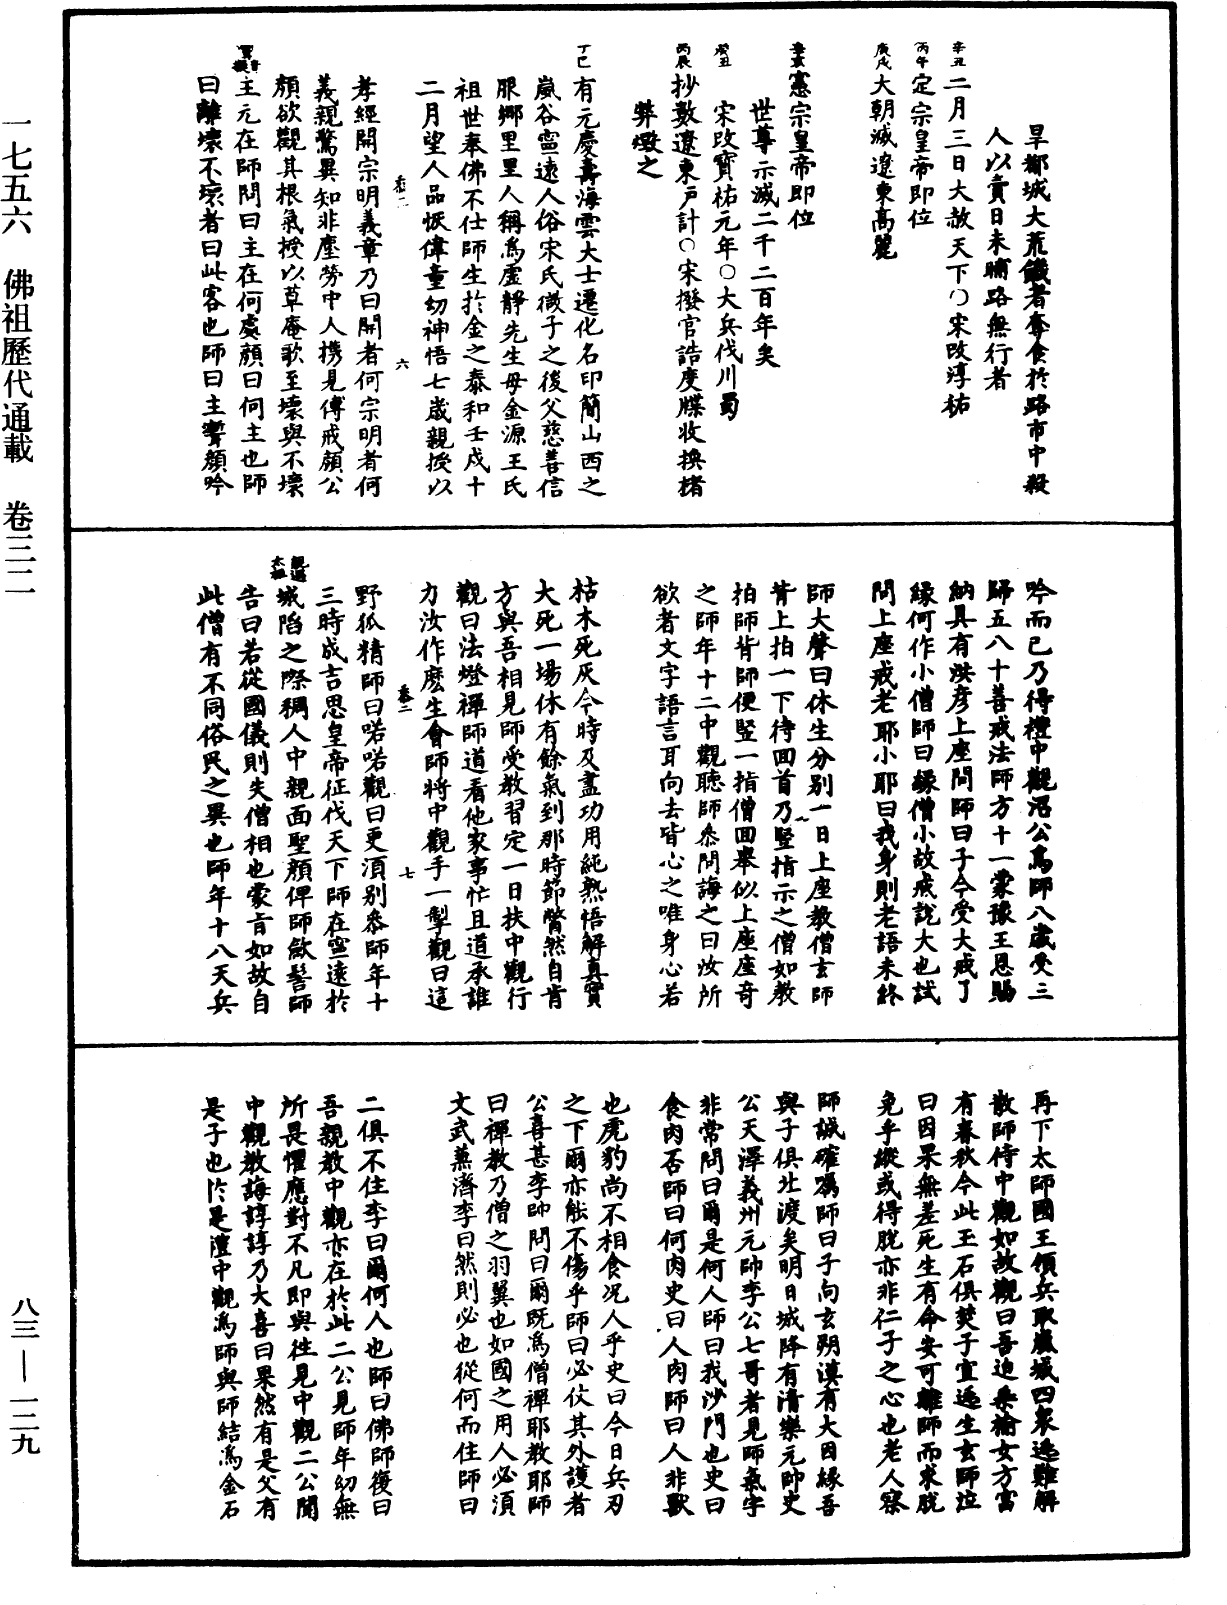 一七五六　佛祖歷代通載　卷三二
旱鄴城大荒饑者奪食於路市中殺
人以賣日未晡路無行者
辛丑二月三日大赦天下〇宋改淳祐
丙午定宗皇帝即位
庚戌大朝滅遼東高麗
辛亥憲宗皇帝即位
世尊示滅二千二百年矣
癸丑宋改寶祐元年〇大兵伐川蜀
丙辰抄數遼東戶計〇宋撥官誥度牒收換楮
弊燬之
丁巳有元慶壽海雲大士遷化名印簡山西之
嵐谷寧遠人俗宋氏微子之後父慈善信
服鄉里里人稱為虛靜先生母金源王氏
祖世奉佛不仕師生於金之泰和壬戌十
二月望人品恢偉童幼神悟七歲親授以
六
孝經開宗明義章乃曰開者何宗明者何
義親驚異知非塵勞中人携見傅戒顏公
顏欲觀其根氣授以草庵歌至壞與不壞
主元在師問曰主在何處顏曰何主也師
曰離壞不壞者曰此客也師曰主顏吟
吟而已乃得禮中觀沼公為師八歲受三
歸五八十善戒法師方十一蒙豫王恩賜
納具有洪彥上座問師曰子今受大戒了
緣何作小僧師曰緣僧小故戒說大也試
問上座戒老耶小耶曰我身則老語未終
師大聲曰休生分別一日上座教僧玄師
背上拍一下待回首乃竪指示之僧如教
拍師背師便竪一指僧回舉似上座座奇
之師年十二中觀聽師叅問誨之曰汝所
欲者文字語言耳向去皆心之唯身心若
枯木死灰今時及盡功用純熟悟解真實
大死一場休有餘氣到那時節瞥然自肯
方與吾相見師受教習定一日扶中觀行
觀曰法燈禪師道看他家事忙且道承誰
力汝作麼生會師將中觀手一掣觀曰這
七
野狐精師曰喏喏觀曰更須別叅師年十
三時成吉思皇帝征伐天下師在寧遠於
城陷之際稠人中親面聖顏俾師斂髻師
告曰若從國儀則失僧相也蒙旨如故自
此僧有不同俗民之異也師年十八天兵
再下太師國王領兵取嵐城四眾逃難解
散師侍中觀如故觀曰吾迫桑榆女方富
有春秋今此玉石俱焚子宜逃生玄師泣
曰因果無差死生有命安可離師而求脫
免乎縱或得脫亦非仁子之心也老人察
師誠確囑師曰子向玄朔漠有大因緣吾
與子俱北渡矣明日城降有清樂元帥史
公天澤義州元帥李公七哥者見師氣宇
非常問曰爾是何人師曰我沙門也史曰
食肉否師曰何肉史曰人肉師曰人非獸
也虎豹尚不相食况人乎史曰今日兵刃
之下爾亦能不傷乎師曰必仗其外護者
公喜甚李帥問曰爾既為僧禪耶教耶師
曰禪教乃僧之羽翼也如國之用人必須
文武兼濟李曰然則必也從何而住師曰
二俱不住李曰爾何人也師曰佛師復曰
吾親教中觀亦在於此二公見師年幼無
所畏懼應對不凡即與往見中觀二公聞
中觀教誨諄諄乃大喜曰果然有是父有
是子也於是禮中觀為師與師結為金石
八三—一二九